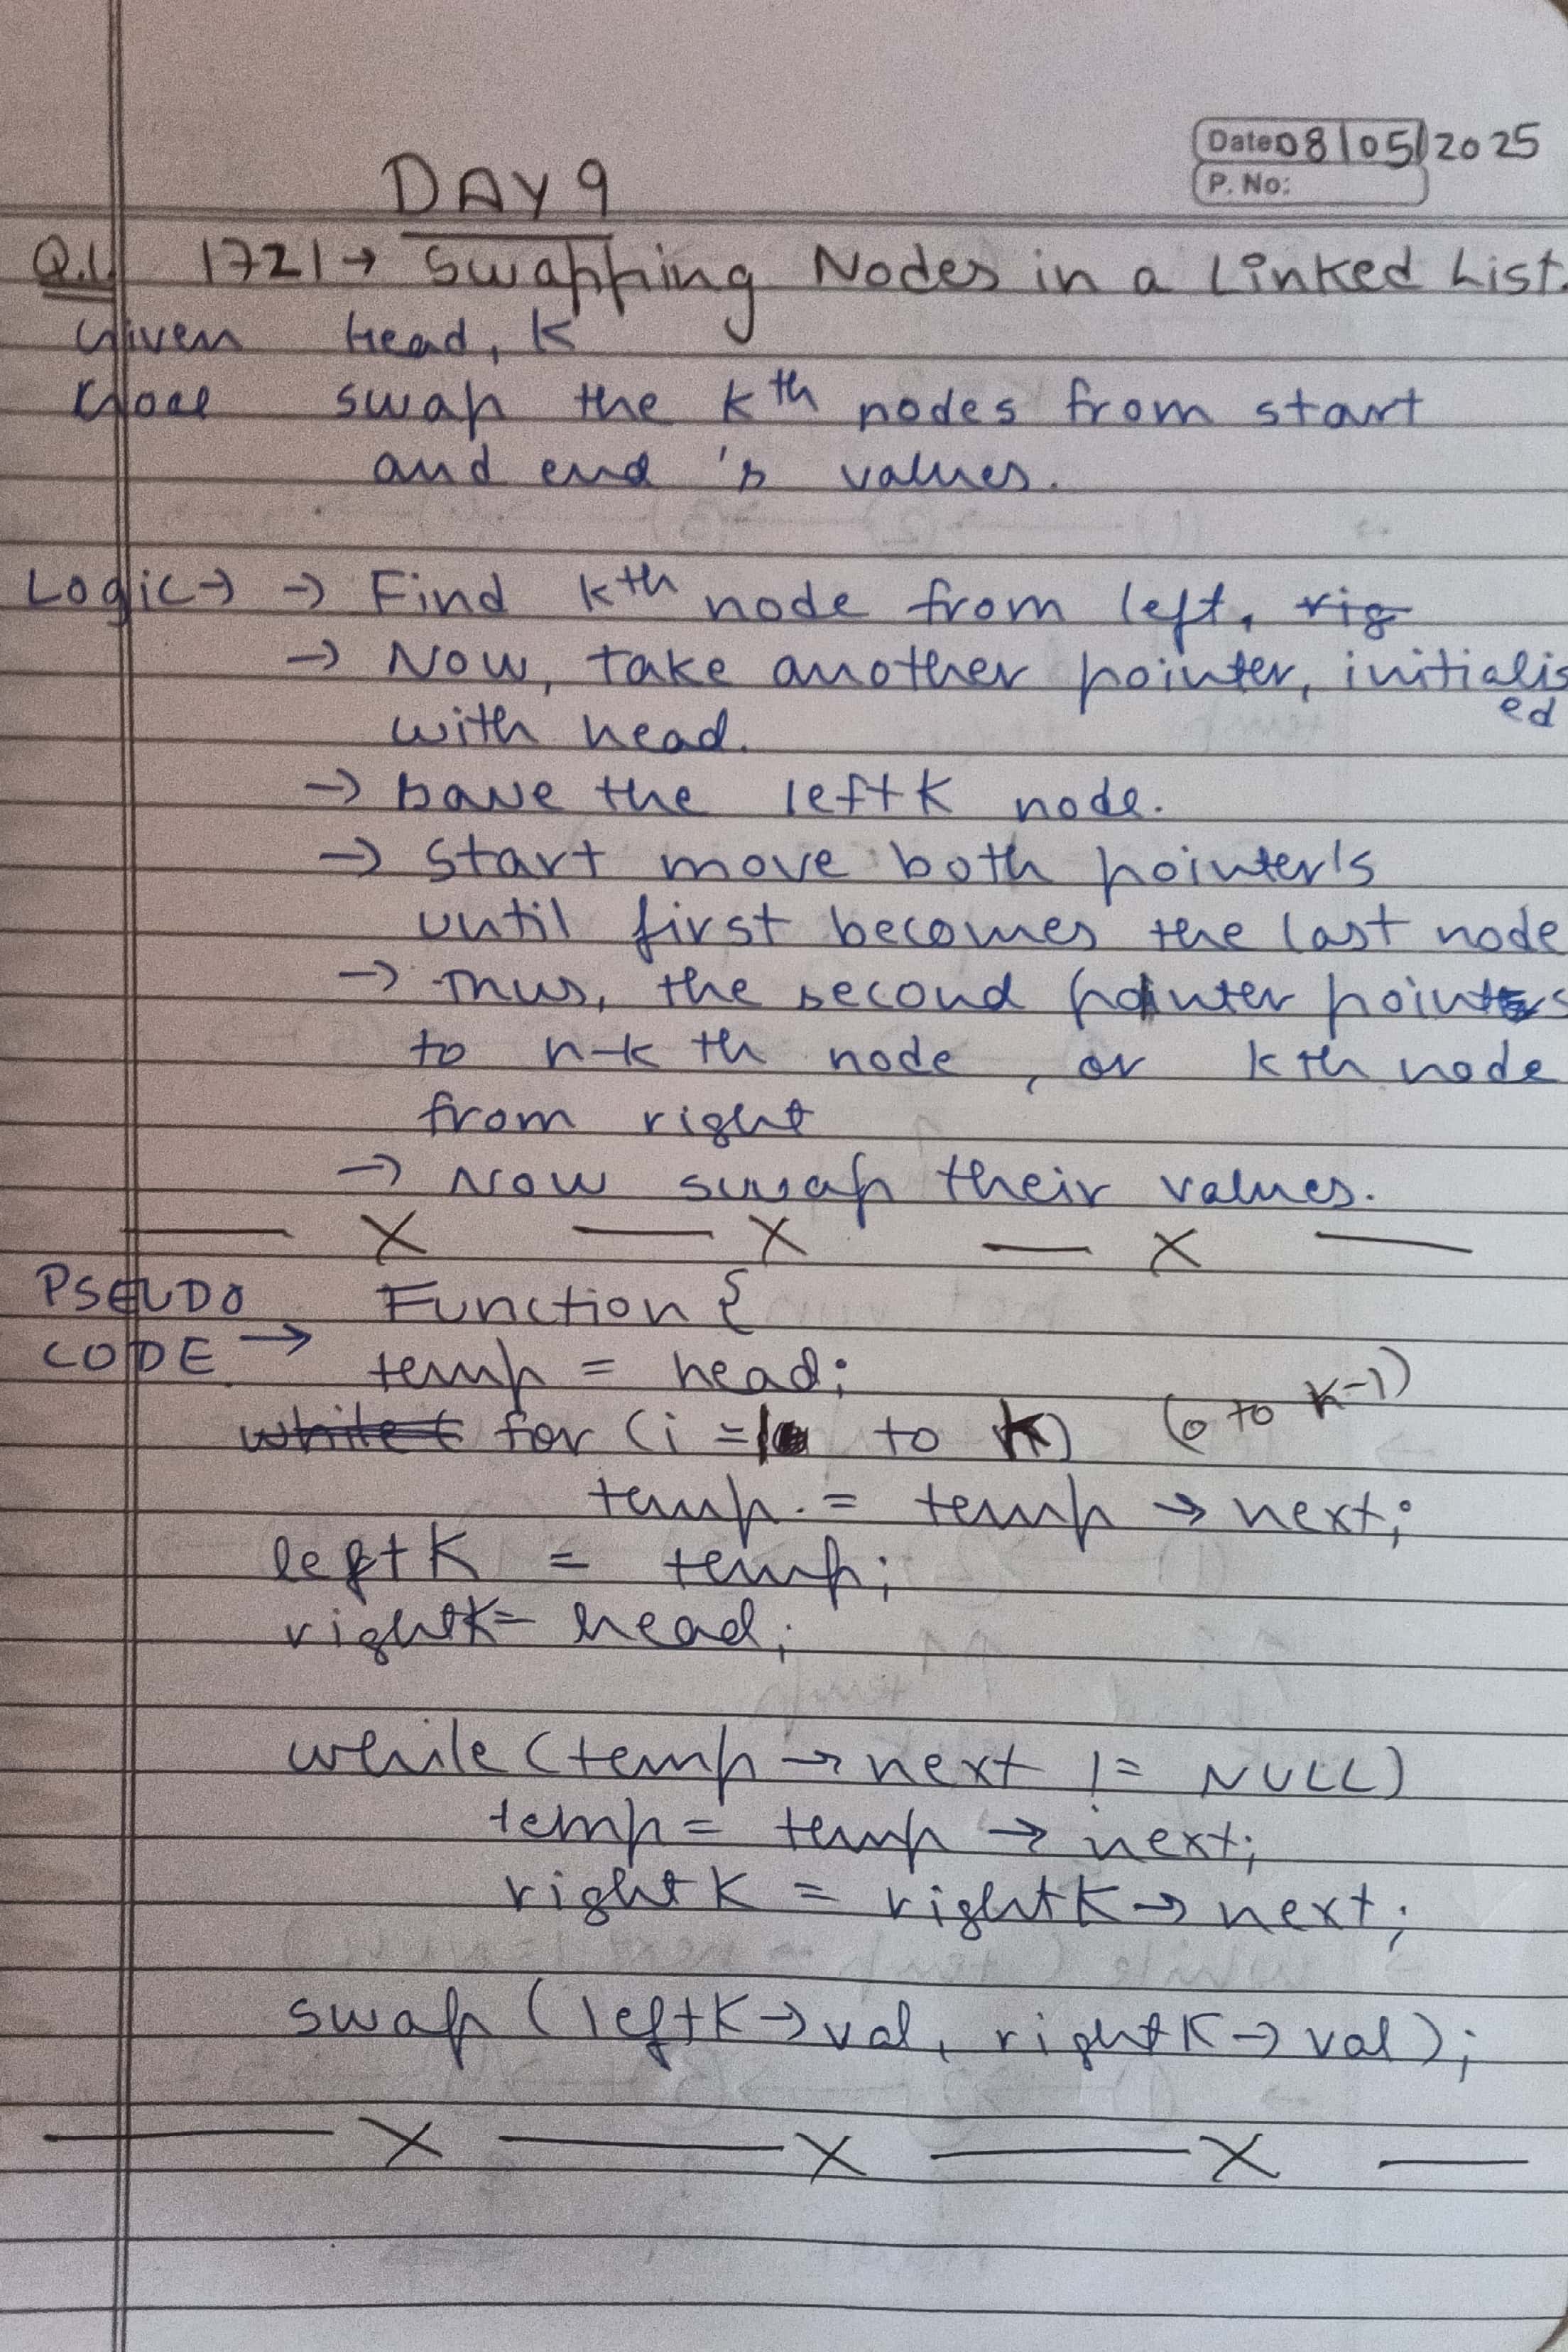 Date: 08/05/2025
P. No:
DAY 9
Q.1. 1721 → Swapping Nodes in a Linked List.
Given head, K
Goal swap the kth nodes from start
and end 's values.
Logic → → Find kth node from left, rig
→ Now, take another pointer, initialis
ed
with head.
→ save the leftK node.
→ start move both pointer's
until first becomes the last node
→ Thus, the second pointer points
to n-k th node, or kth node
from right
→ Now swap their values.
— X — X — X —
PSEUDO Function {
CODE. → temp = head;
while ( for (i = 1 to k) (0 to k-1)
temp = temp → next;
leftK = temp;
rightK = head;
while (temp → next != NULL)
temp = temp → next;
rightK = rightK → next;
swap (leftK → val, rightK → val);
— X — X — X —